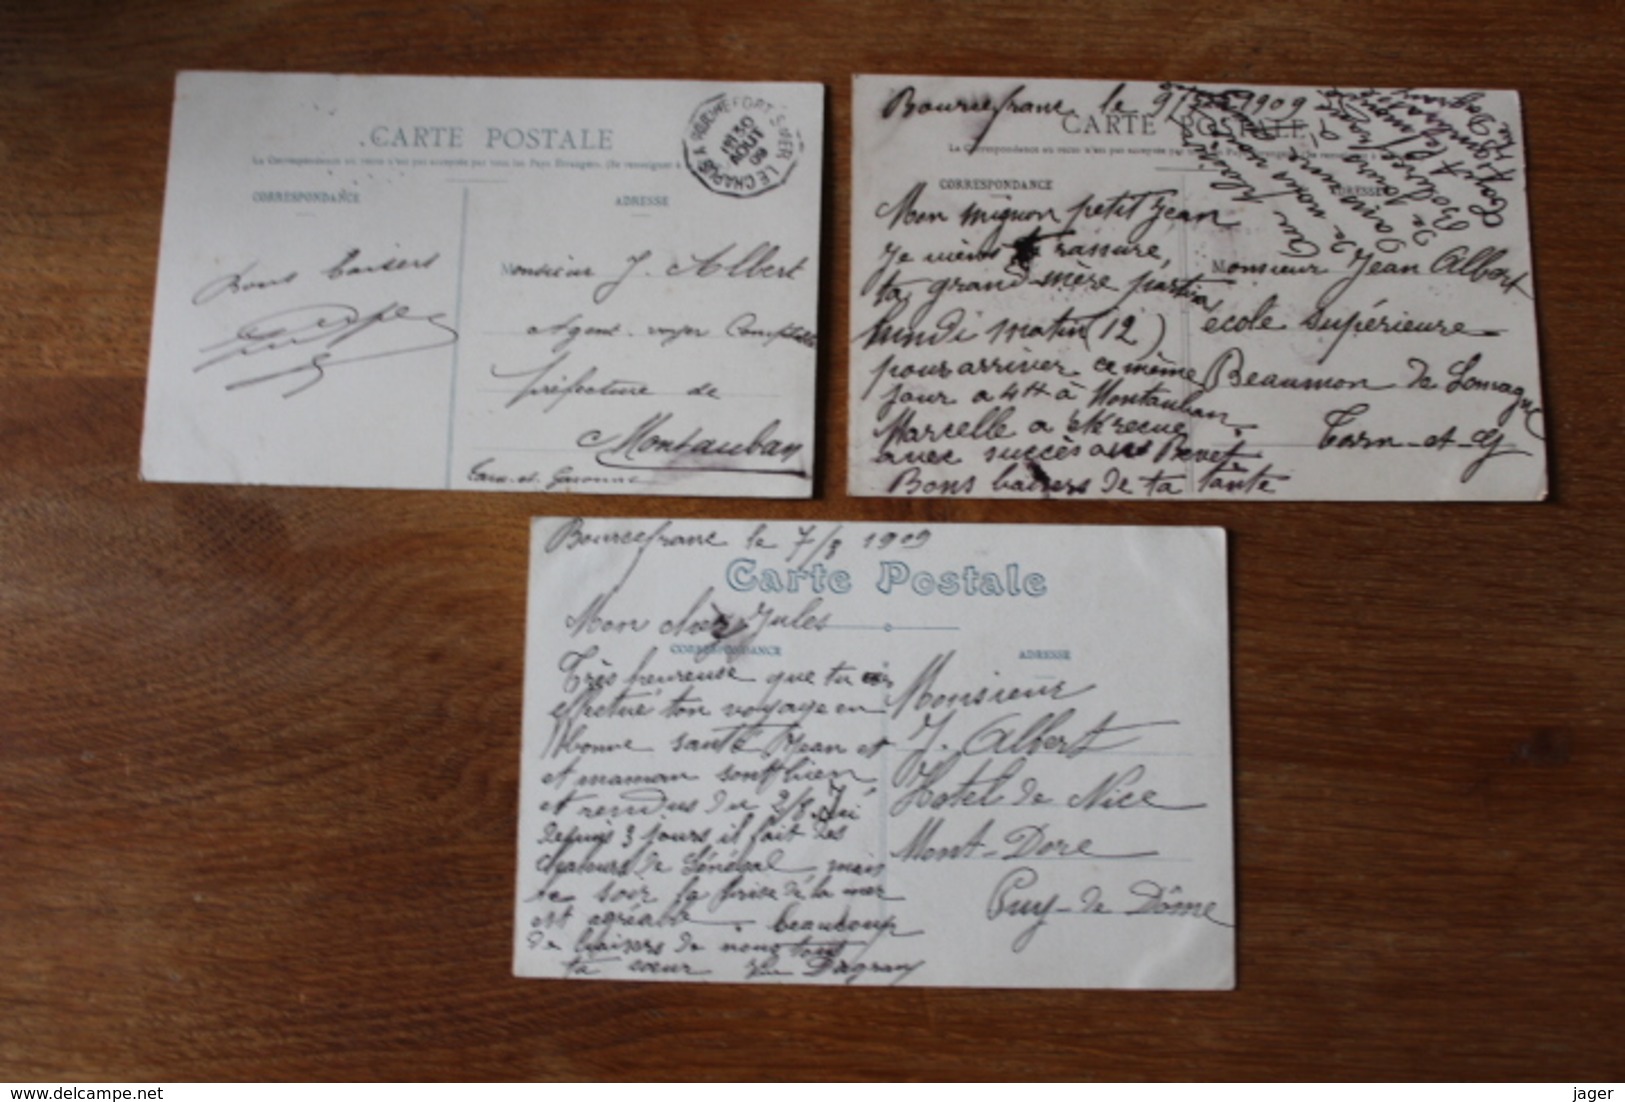 CARTE POSTALE
La Correspondance au recto n'est pas acceptée par tous les Pays Etrangers. (Se renseigner à
CORRESPONDANCE
ADRESSE
ROCHEFORT-S-MER LE CHAPUS A
30
AOUT
09
Bons baisers
Monsieur J. Albert
Agent-voyer Comptable
préfecture de
Montauban
Tarn-et-Garonne
Bourcefranc le 9/
1909
CARTE POSTALE
CORRESPONDANCE
ADRESSE
Mon mignon petit Jean
Je viens te rassure,
ta grand-mère partira
lundi matin (12)
pour arriver ce même
jour a 4H à Montauban
Marcelle a été recue
avec succès au Brevet
Bons baisers de ta tante
Au plaisir
de nous voir
Monsieur Jean Albert
école Supérieure
Beaumon de Lomagne
Tarn-et-G
Bourcefranc le 7/8 1909
Carte Postale
CORRESPONDANCE
ADRESSE
Mon cher Jules
Très heureuse que tu ais
effectué ton voyage en
bonne santé Jean et
et maman sont bien
et rendus du 2/8. Ici
depuis 3 jours il fait des
chaleurs de Sénégal, mais
le soir la brise de la mer
est agréable. beaucoup
de baisers de nous tous
ta sœur Dagran
Monsieur
J. Albert
Hotel de Nice
Mont-Dore
Puy-de Dôme
www.delcampe.net
jager